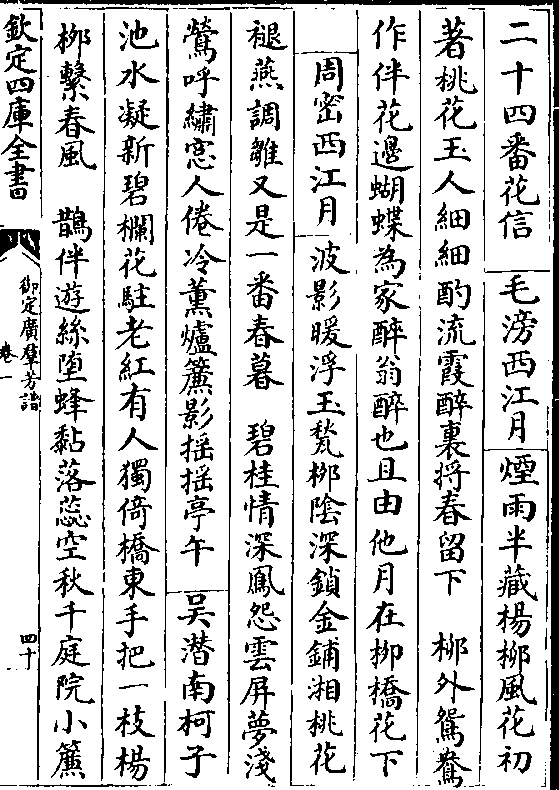 二十四番花信　毛滂西江月　煙雨半藏楊栁風花初
著桃花玉人細細酌流霞醉裏捋春留下　栁外鴛鴦
作伴花邊蝴蝶為家醉翁醉也且由他月在栁橋花下
周密西江月　波影暖浮玉甃栁陰深鎖金鋪湘桃花
褪燕調雛又是一番春暮　碧桂情深鳳怨雲屏夢淺
鶯呼繡窓人倦冷薰爐簾影摇摇亭午　吴潛南柯子
池水凝新碧欄花駐老紅有人獨倚橋東手把一枝楊
栁繫春風　鵲伴遊絲墮蜂黏落蕊空秋千庭院小簾
欽定四庫全書
御定廣羣芳譜
卷一
四十